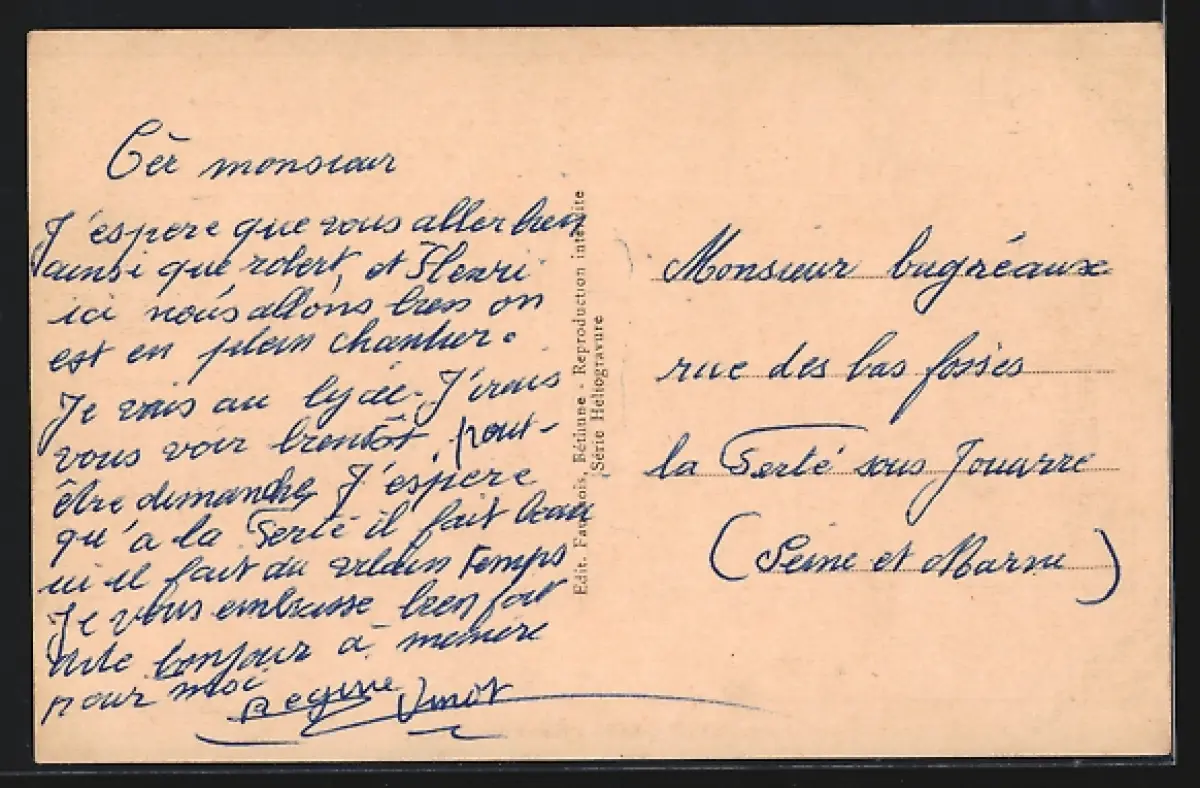 Cèr monsieur
J'espere que vous aller bien
ainsi que robert, et Henri
ici nous allons bien on
est en plein chantier.
Je vais au lycée. J'irais
vous voir bientôt, peut-
être dimanche, J'espere
qu'a la Ferté il fait beau
ici il fait du vilain temps
Je vous embrasse bien fort
bonjour a memere
pour moi
Regine
Edit. Béthune - Reproduction interdite
Série Héliogravure
Monsieur bugréaux
rue des bas fossés
la Ferté sous Jouarre
(Seine et Marne)